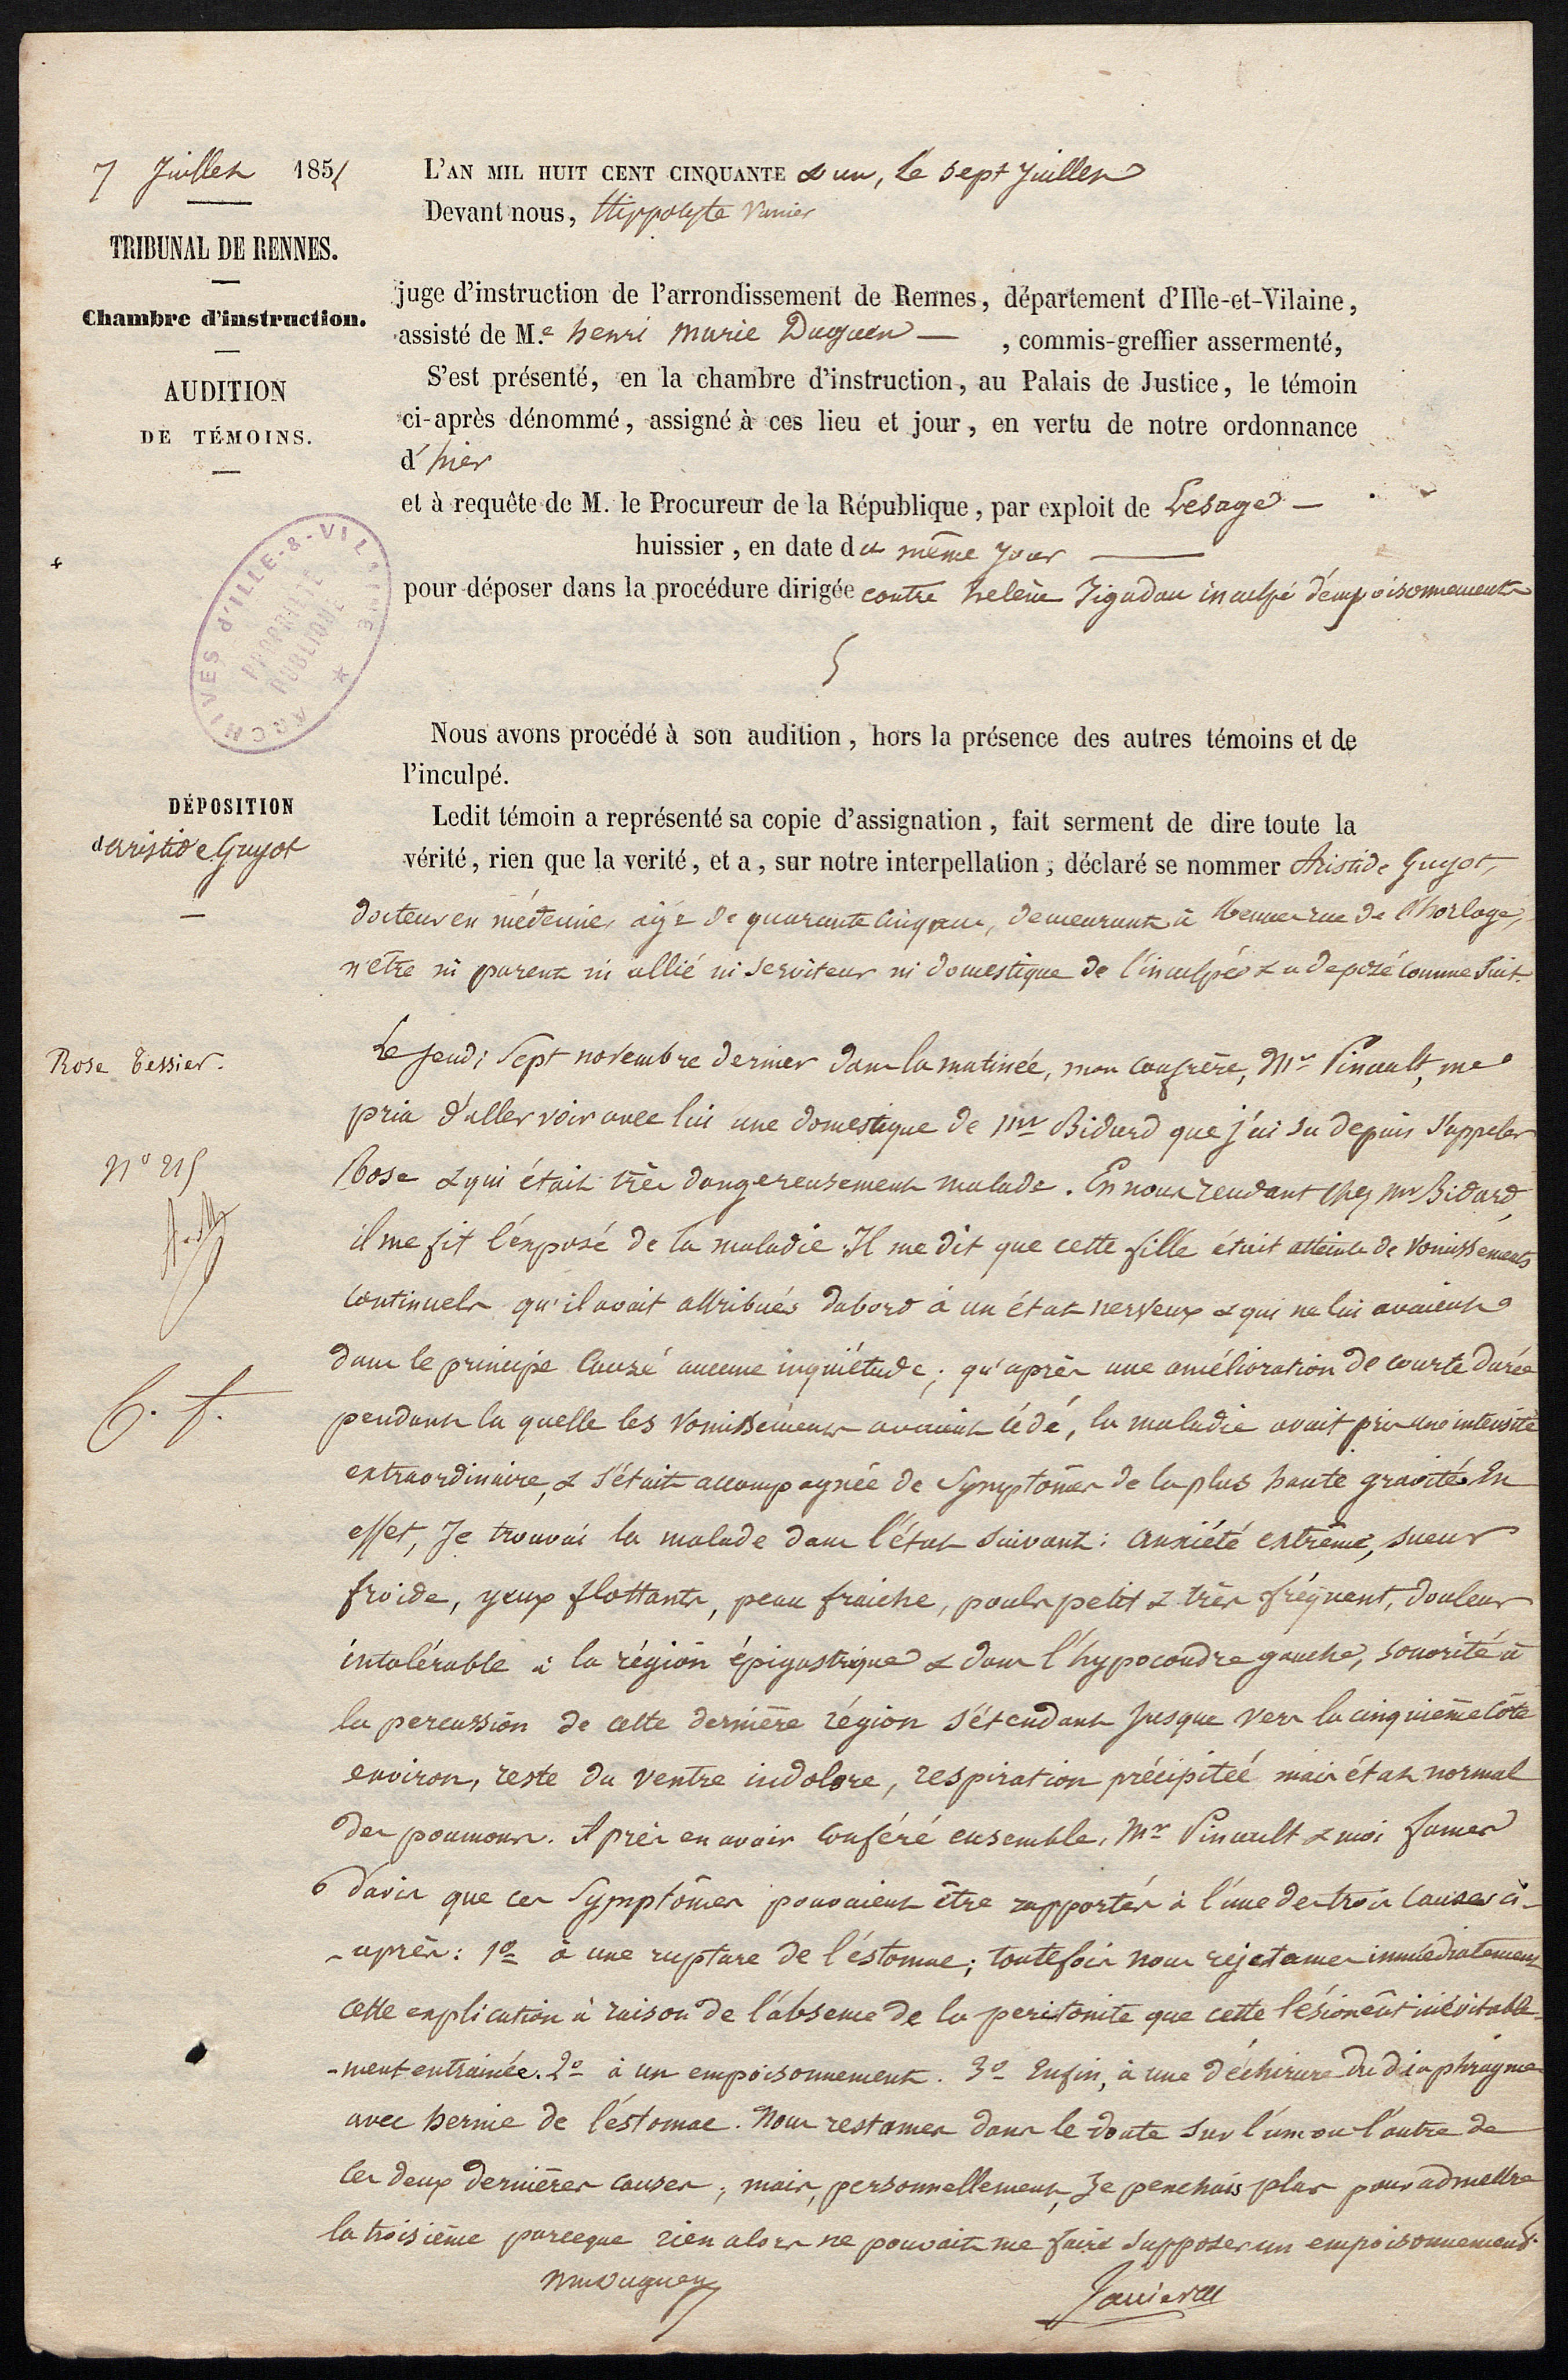 7 Juillet 1851
TRIBUNAL DE RENNES.
Chambre d'instruction.
AUDITION
DE TÉMOINS.
ARCHIVES D'ILLE-&-VILAINE
PROPRIÉTÉ
PUBLIQUE
L'AN MIL HUIT CENT CINQUANTE & un, le sept Juillet
Devant nous, Hippolyte Vannier
juge d'instruction de l'arrondissement de Rennes, département d'Ille-et-Vilaine,
assisté de M.e henri Marie Duguen — , commis-greffier assermenté,
S'est présenté, en la chambre d'instruction, au Palais de Justice, le témoin
ci-après dénommé, assigné à ces lieu et jour, en vertu de notre ordonnance
d'hier
et à requête de M. le Procureur de la République, par exploit de Lesage —
huissier, en date du même jour —
pour déposer dans la procédure dirigée contre helène Jégadau inculpé d'empoisonnements
Nous avons procédé à son audition, hors la présence des autres témoins et de
l'inculpé.
DÉPOSITION
d'aristide Guyot
Ledit témoin a représenté sa copie d'assignation, fait serment de dire toute la
vérité, rien que la verité, et a, sur notre interpellation, déclaré se nommer Aristide Guyot,
docteur en médecine, agé de quarante cinq ans, demeurant à Rennes rue de l'horloge,
n'être ni parent ni allié ni serviteur ni domestique de l'inculpée & a déposé comme suit.
Rose Tessier.
Nº 215
Le Jeudi sept novembre dernier dans la matinée, mon confrère, Mr Pinault, me
pria d'aller voir avec lui une domestique de Mr Bidard que j'ai su depuis s'appeler
Rose & qui était très dangereusement malade. En nous rendant chez Mr Bidard,
il me fit l'exposé de la maladie. Il me dit que cette fille était atteinte de vomissements
continuels qu'il avait attribués dabord à un état nerveux & qui ne lui avaient
dans le principe causé aucune inquiétude; qu'après une amélioration de courte durée
pendant la quelle les vomissements avaient cédé, la maladie avait pris une intensité
extraordinaire, & s'était accompagnée de symptômes de la plus haute gravité. En
effet, Je trouvai la malade dans l'état suivant: anxiété extrême, sueur
froide, yeux flottants, peau fraiche, pouls petit & très fréquent, douleur
intolérable à la région épigastrique & dans l'hypocondre gauche, sonorité à
la percussion de cette dernière région s'étendant Jusque vers la cinquième côte
environ, reste du ventre indolore, respiration précipitée mais état normal
des poumons. Après en avoir conféré ensemble, Mr Pinault & moi fumes
d'avis que ces symptômes pouvaient être rapportés à l'une des trois causes ci-
-après: 1º à une rupture de l'éstomac; toutefois nous rejetames immédiatement
cette explication à raison de l'absence de la peritonite que cette lésion eût inévitable-
-ment entrainée. 2º à un empoisonnement. 3º Enfin, à une déchirure du diaphragme
avec hernie de l'éstomac. Nous restames dans le doute sur l'une ou l'autre de
ces deux dernières causes; mais, personnellement, Je penchais plus pour admettre
la troisième parceque rien alors ne pouvait me faire supposer un empoisonnement.